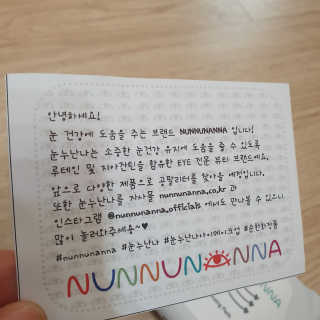 안녕하세요!
눈 건강에 도움을 주는 브랜드 NUNNUNANNA 입니다!
눈누난나는 소중한 눈건강 유지에 도움을 줄 수 있도록
루테인 및 지아잔틴을 함유한 EYE 전문 뷰티 브랜드에요.
앞으로 다양한 제품으로 공팔리터를 찾아올 예정입니다.
또한 눈누난나를 자사몰 nunnunanna.co.kr 과
인스타그램 @nunnunanna.officials 에서도 만나볼 수 있으니
많이 놀러와주세용~♥
#nunnunanna #눈누난나 #눈누난나아이메이크업 #순한화장품
NUNNUNANNA